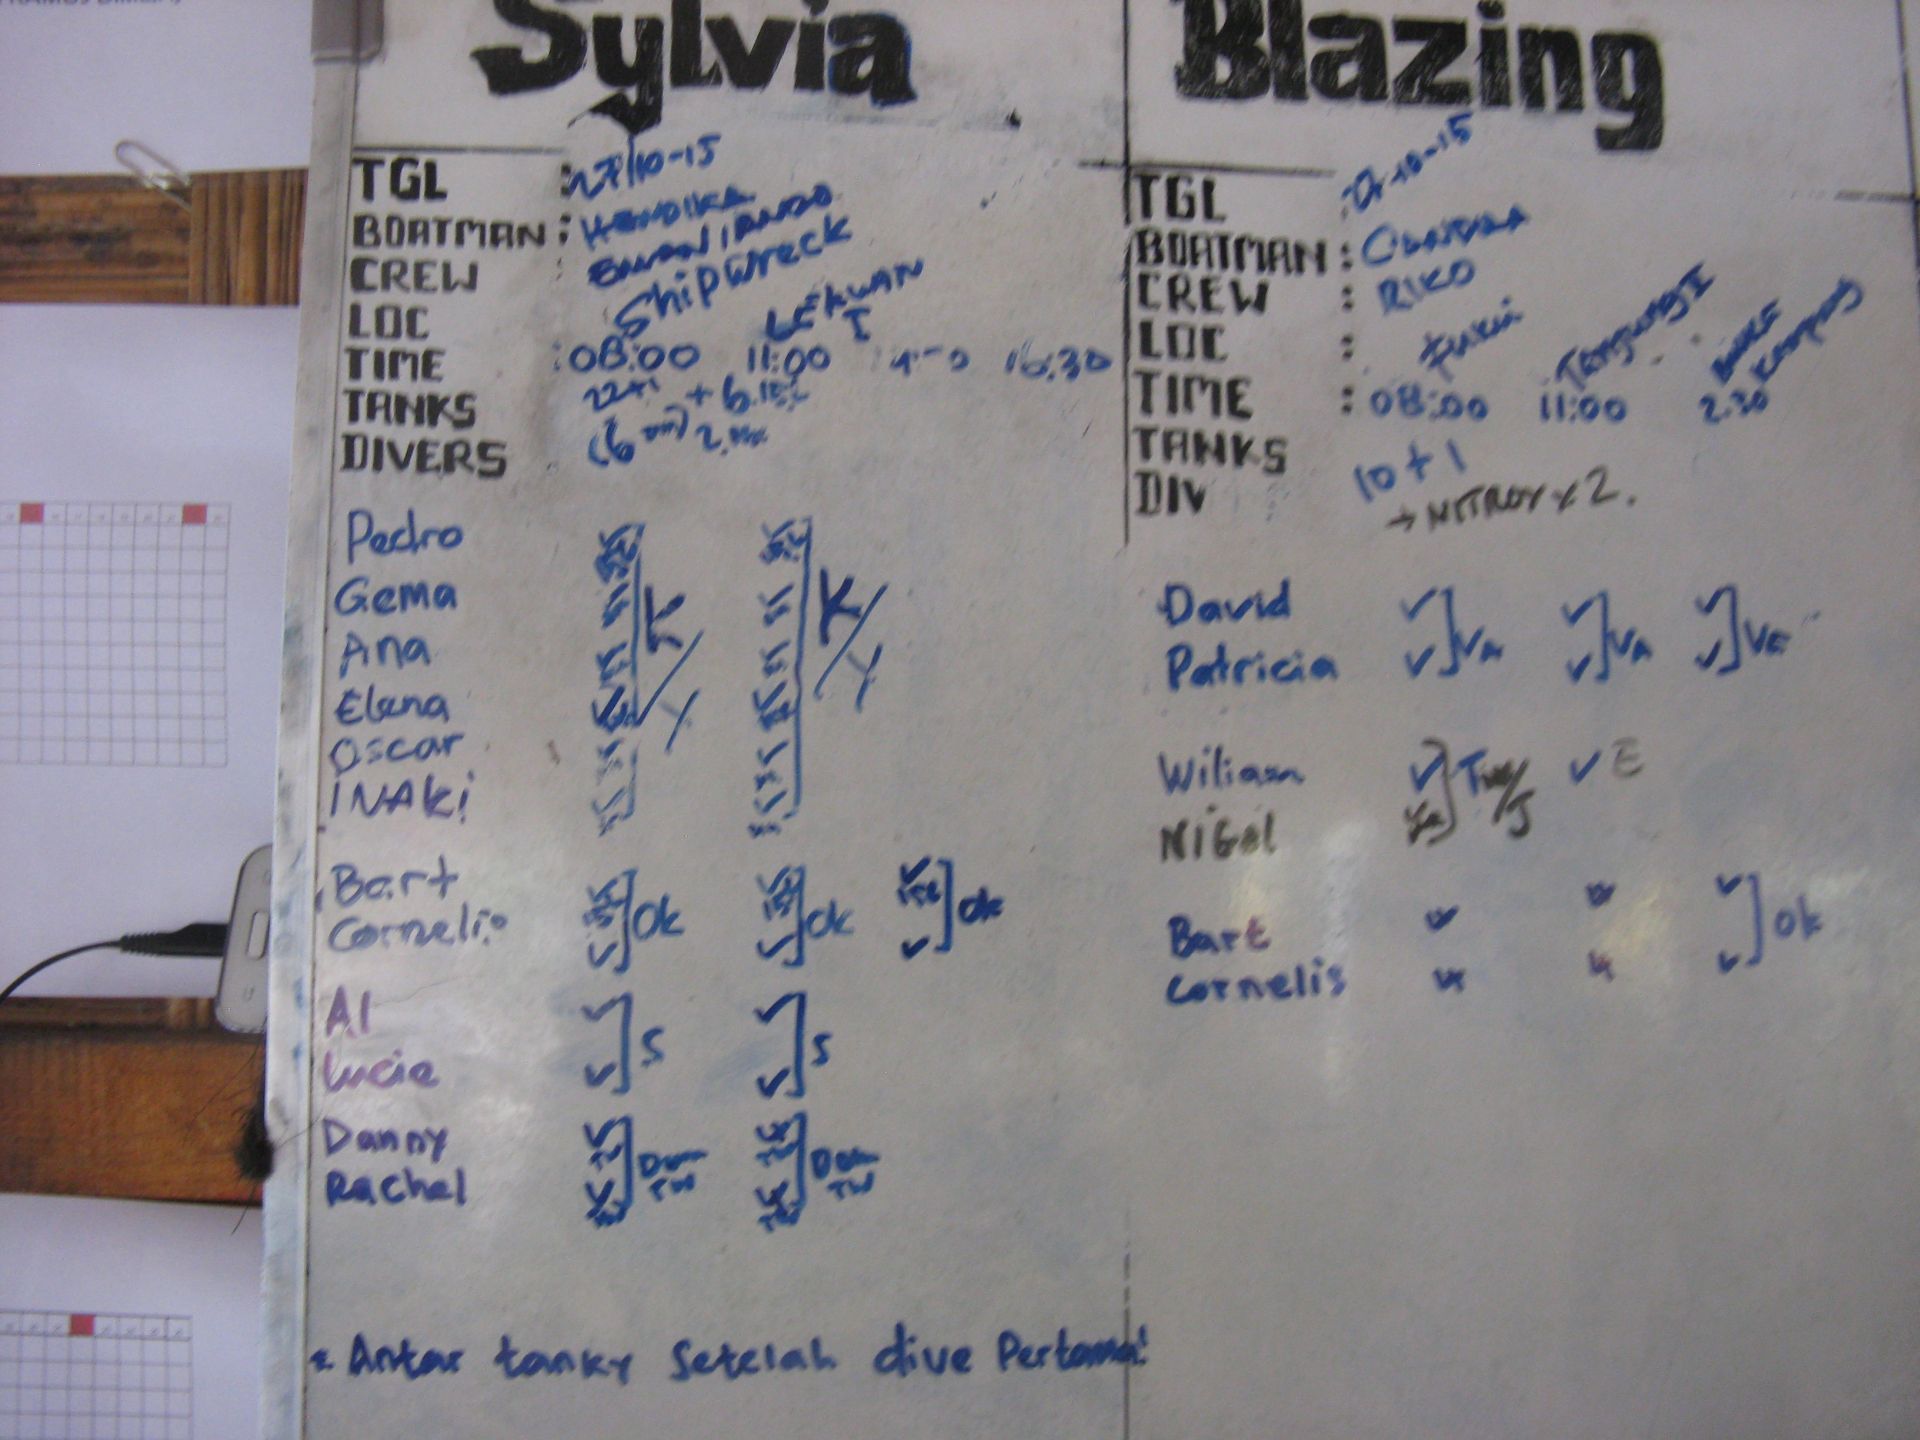 Sylvia
TGL : 27/10-15
BOATMAN : HENDIKA
CREW :
LOC Shipwreck LEKUAN I
TIME : 08:00 11:00 16:30
TANKS 22+1
DIVERS
Pedro
Gema K/Y K/Y
Ana
Elena
Oscar
INAKi
Bart
Cornelis Ok Ok Ok
Al
Lucie S S
Danny
Rachel
* Antar tanky Setelah dive Pertama!
Blazing
TGL : 27-10-15
BOATMAN :
CREW : RIKO
LOC : Fukui Tanjung I
TIME : 08:00 11:00 2.30
TANKS 10 + 1
DIV → NITROX x 2.
David
Patricia VA VA VE
Wiliam E
NIGEL
Bart Ok
Cornelis